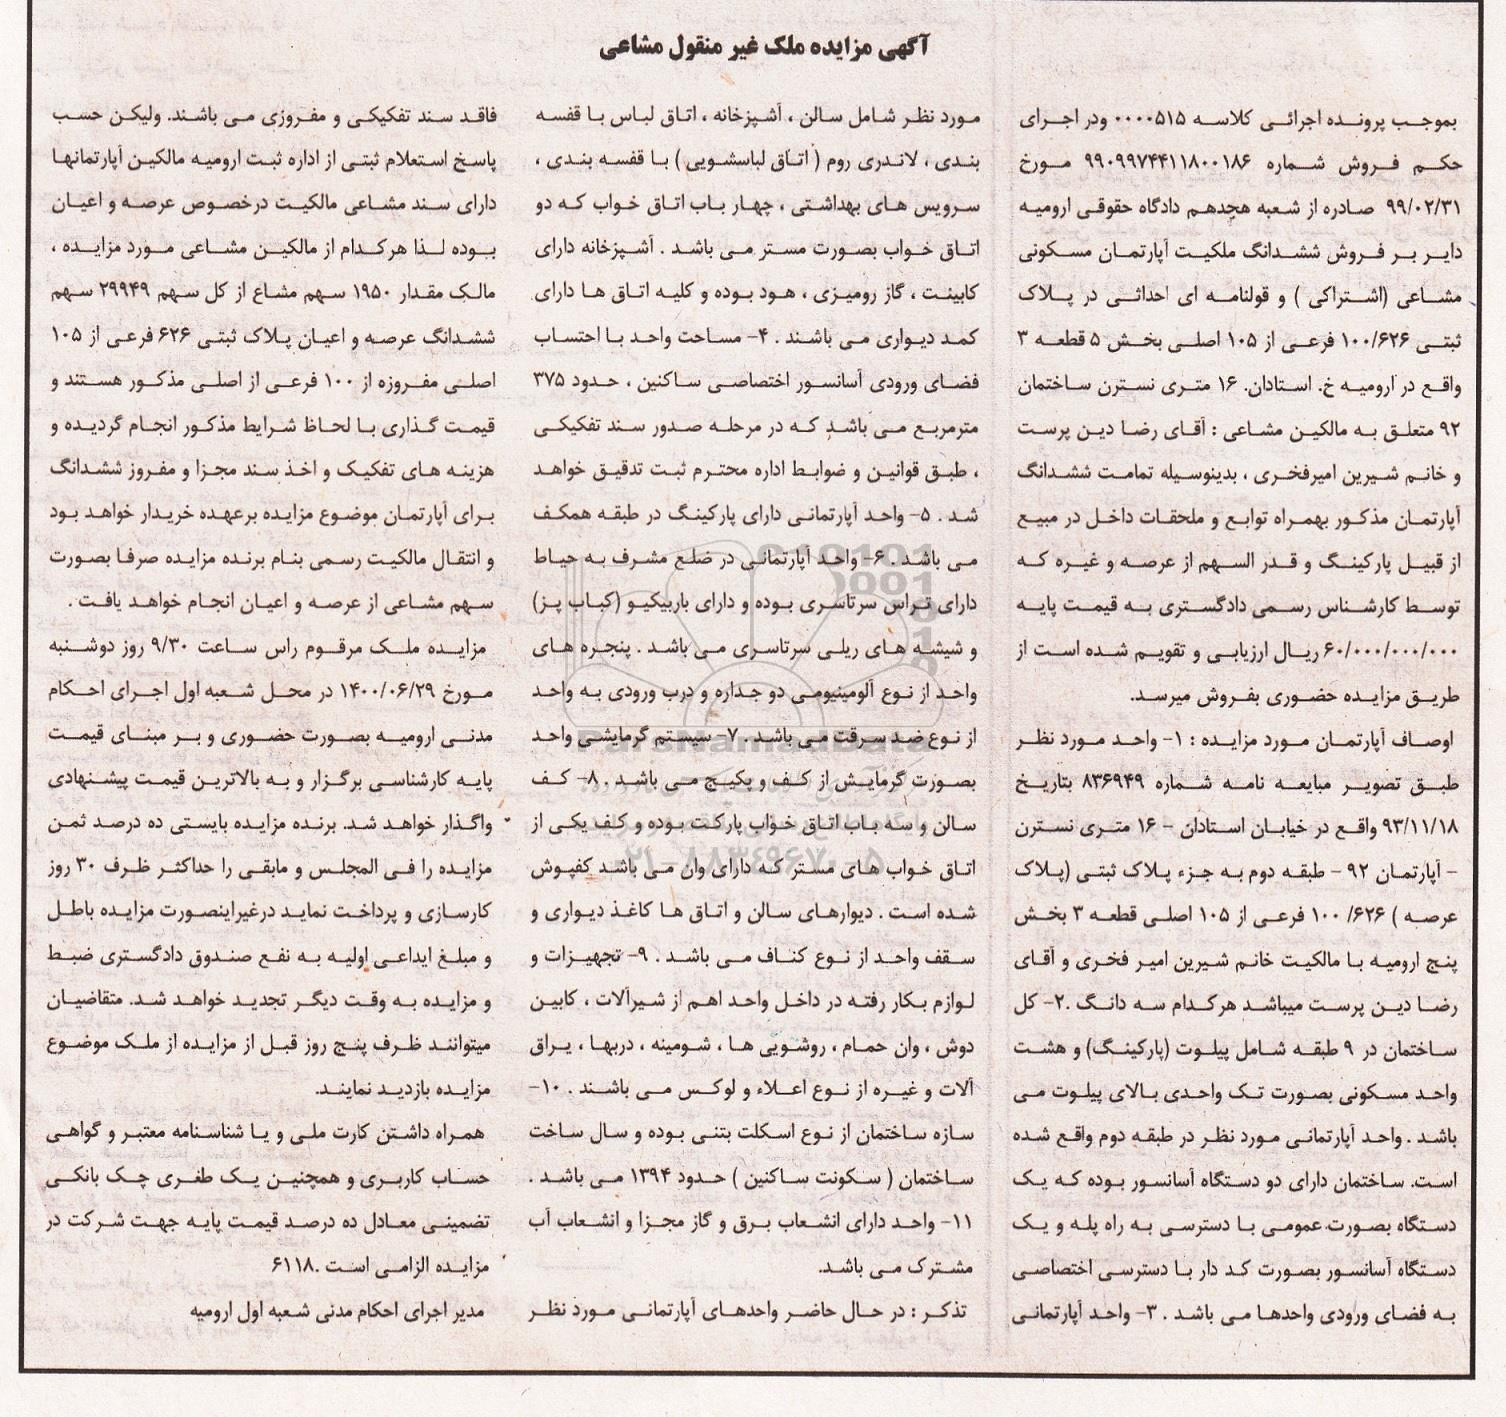 آگهی مزایده ملک غیر منقول مشاعی
بموجب پرونده اجرائی کلاسه ۰۰۰۰۵۱۵ ودر اجرای
حکم فروش شماره ۹۹۰۹۹۷۴۴۱۱۸۰۰۱۸۶ مورخ
۹۹/۰۲/۳۱ صادره از شعبه هجدهم دادگاه حقوقی ارومیه
دایر بر فروش ششدانگ ملکیت آپارتمان مسکونی
مشاعی (اشتراکی ) و قولنامه ای احداثی در پلاک
ثبتی ۱۰۰/۶۲۶ فرعی از ۱۰۵ اصلی بخش ۵ قطعه ۳
واقع در ارومیه خ. استادان. ۱۶ متری نسترن ساختمان
۹۲ متعلق به مالکین مشاعی : آقای رضا دین پرست
و خانم شیرین امیرفخری ، بدینوسیله تمامت ششدانگ
آپارتمان مذکور بهمراه توابع و ملحقات داخل در مبیع
از قبیل پارکینگ و قدر السهم از عرصه و غیره که
توسط کارشناس رسمی دادگستری به قیمت پایه
۶۰/۰۰۰/۰۰۰/۰۰۰ ریال ارزیابی و تقویم شده است از
طریق مزایده حضوری بفروش میرسد.
اوصاف آپارتمان مورد مزایده : ۱- واحد مورد نظر
طبق تصویر مبایعه نامه شماره ۸۳۶۹۴۹ بتاریخ
۹۳/۱۱/۱۸ واقع در خیابان استادان - ۱۶ متری نسترن
- آپارتمان ۹۲ - طبقه دوم به جزء پلاک ثبتی (پلاک
عرصه ) ۶۲۶/ ۱۰۰ فرعی از ۱۰۵ اصلی قطعه ۳ بخش
پنج ارومیه با مالکیت خانم شیرین امیر فخری و آقای
رضا دین پرست میباشد هرکدام سه دانگ .۲- کل
ساختمان در ۹ طبقه شامل پیلوت (پارکینگ) و هشت
واحد مسکونی بصورت تک واحدی بالای پیلوت می
باشد . واحد آپارتمانی مورد نظر در طبقه دوم واقع شده
است. ساختمان دارای دو دستگاه آسانسور بوده که یک
دستگاه بصورت عمومی با دسترسی به راه پله و یک
دستگاه آسانسور بصورت کد دار با دسترسی اختصاصی
به فضای ورودی واحدها می باشد . ۳- واحد آپارتمانی
مورد نظر شامل سالن ، آشپزخانه ، اتاق لباس با قفسه
بندی ، لاندری روم ( اتاق لباسشویی ) با قفسه بندی ،
سرویس های بهداشتی ، چهار باب اتاق خواب که دو
اتاق خواب بصورت مستر می باشد . آشپزخانه دارای
کابینت ، گاز رومیزی ، هود بوده و کلیه اتاق ها دارای
کمد دیواری می باشند . ۴- مساحت واحد با احتساب
فضای ورودی آسانسور اختصاصی ساکنین ، حدود ۳۷۵
مترمربع می باشد که در مرحله صدور سند تفکیکی
، طبق قوانین و ضوابط اداره محترم ثبت تدقیق خواهد
شد . ۵- واحد آپارتمانی دارای پارکینگ در طبقه همکف
می باشد . ۶- واحد آپارتمانی در ضلع مشرف به حیاط
دارای تراس سرتاسری بوده و دارای باربیکیو (کباب پز)
و شیشه های ریلی سرتاسری می باشد . پنجره های
واحد از نوع آلومینیومی دو جداره و درب ورودی به واحد
از نوع ضد سرقت می باشد . ۷- سیستم گرمایشی واحد
بصورت گرمایش از کف و پکیج می باشد . ۸- کف
سالن و سه باب اتاق خواب پارکت بوده و کف یکی از
اتاق خواب های مستر که دارای وان می باشد کفپوش
شده است . دیوارهای سالن و اتاق ها کاغذ دیواری و
سقف واحد از نوع کناف می باشد . ۹- تجهیزات و
لوازم بکار رفته در داخل واحد اهم از شیرآلات ، کابین
دوش ، وان حمام ، روشویی ها ، شومینه ، دربها ، یراق
آلات و غیره از نوع اعلاء و لوکس می باشند . ۱۰-
سازه ساختمان از نوع اسکلت بتنی بوده و سال ساخت
ساختمان ( سکونت ساکنین ) حدود ۱۳۹۴ می باشد .
۱۱- واحد دارای انشعاب برق و گاز مجزا و انشعاب آب
مشترک می باشد.
تذکر : در حال حاضر واحدهای آپارتمانی مورد نظر
فاقد سند تفکیکی و مفروزی می باشند. ولیکن حسب
پاسخ استعلام ثبتی از اداره ثبت ارومیه مالکین آپارتمانها
دارای سند مشاعی مالکیت درخصوص عرصه و اعیان
بوده لذا هرکدام از مالکین مشاعی مورد مزایده ،
مالک مقدار ۱۹۵۰ سهم مشاع از کل سهم ۲۹۹۴۹ سهم
ششدانگ عرصه و اعیان پلاک ثبتی ۶۲۶ فرعی از ۱۰۵
اصلی مفروزه از ۱۰۰ فرعی از اصلی مذکور هستند و
قیمت گذاری با لحاظ شرایط مذکور انجام گردیده و
هزینه های تفکیک و اخذ سند مجزا و مفروز ششدانگ
برای آپارتمان موضوع مزایده برعهده خریدار خواهد بود
و انتقال مالکیت رسمی بنام برنده مزایده صرفا بصورت
سهم مشاعی از عرصه و اعیان انجام خواهد یافت .
مزایده ملک مرقوم راس ساعت ۹/۳۰ روز دوشنبه
مورخ ۱۴۰۰/۰۶/۲۹ در محل شعبه اول اجرای احکام
مدنی ارومیه بصورت حضوری و بر مبنای قیمت
پایه کارشناسی برگزار و به بالاترین قیمت پیشنهادی
واگذار خواهد شد. برنده مزایده بایستی ده درصد ثمن
مزایده را فی المجلس و مابقی را حداکثر ظرف ۳۰ روز
کارسازی و پرداخت نماید درغیراینصورت مزایده باطل
و مبلغ ایداعی اولیه به نفع صندوق دادگستری ضبط
و مزایده به وقت دیگر تجدید خواهد شد. متقاضیان
میتوانند ظرف پنج روز قبل از مزایده از ملک موضوع
مزایده بازدید نمایند.
همراه داشتن کارت ملی و یا شناسنامه معتبر و گواهی
حساب کاربری و همچنین یک طغری چک بانکی
تضمینی معادل ده درصد قیمت پایه جهت شرکت در
مزایده الزامی است .۶۱۱۸
مدیر اجرای احکام مدنی شعبه اول ارومیه
ParsNamadData
۰۲۱-۸۸۳۴۹۶۷۰-۵